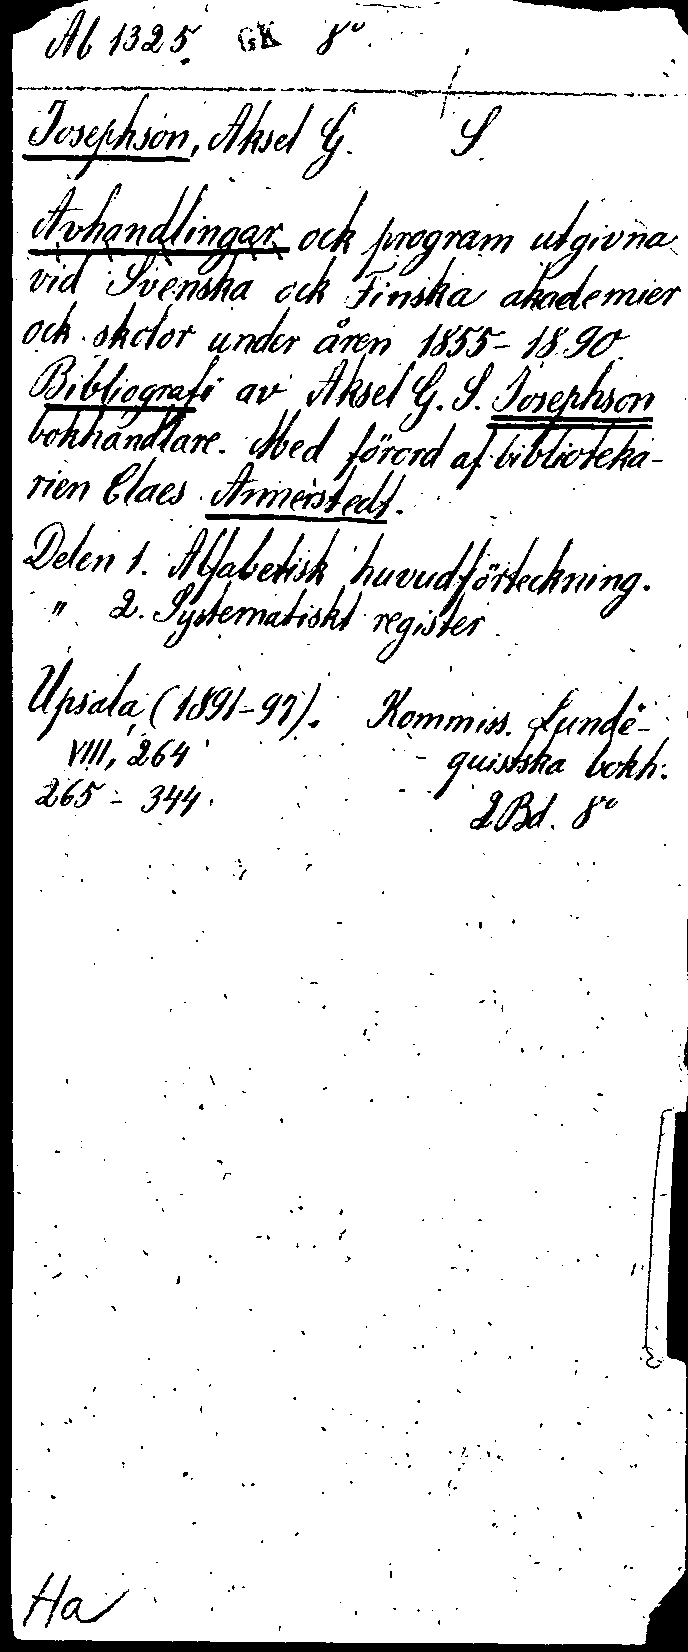 Ab 1325. GK 8°.
Josephson, Aksel G. S.
Avhandlingar ock program utgivna
vid Svenska ock Finska akademier
ock skolor under åren 1855-1890.
Bibliografi av Aksel G. S. Josephson
bokhandlare. Med förord af biblioteka-
rien Claes Annerstedt.
Delen 1. Alfabetisk huvudförteckning.
" 2. Systematiskt register
Upsala (1891-97). Kommiss. Lunde-
VIII, 264 quistska bokh.
265-344. 2 Bd. 8°
Ha